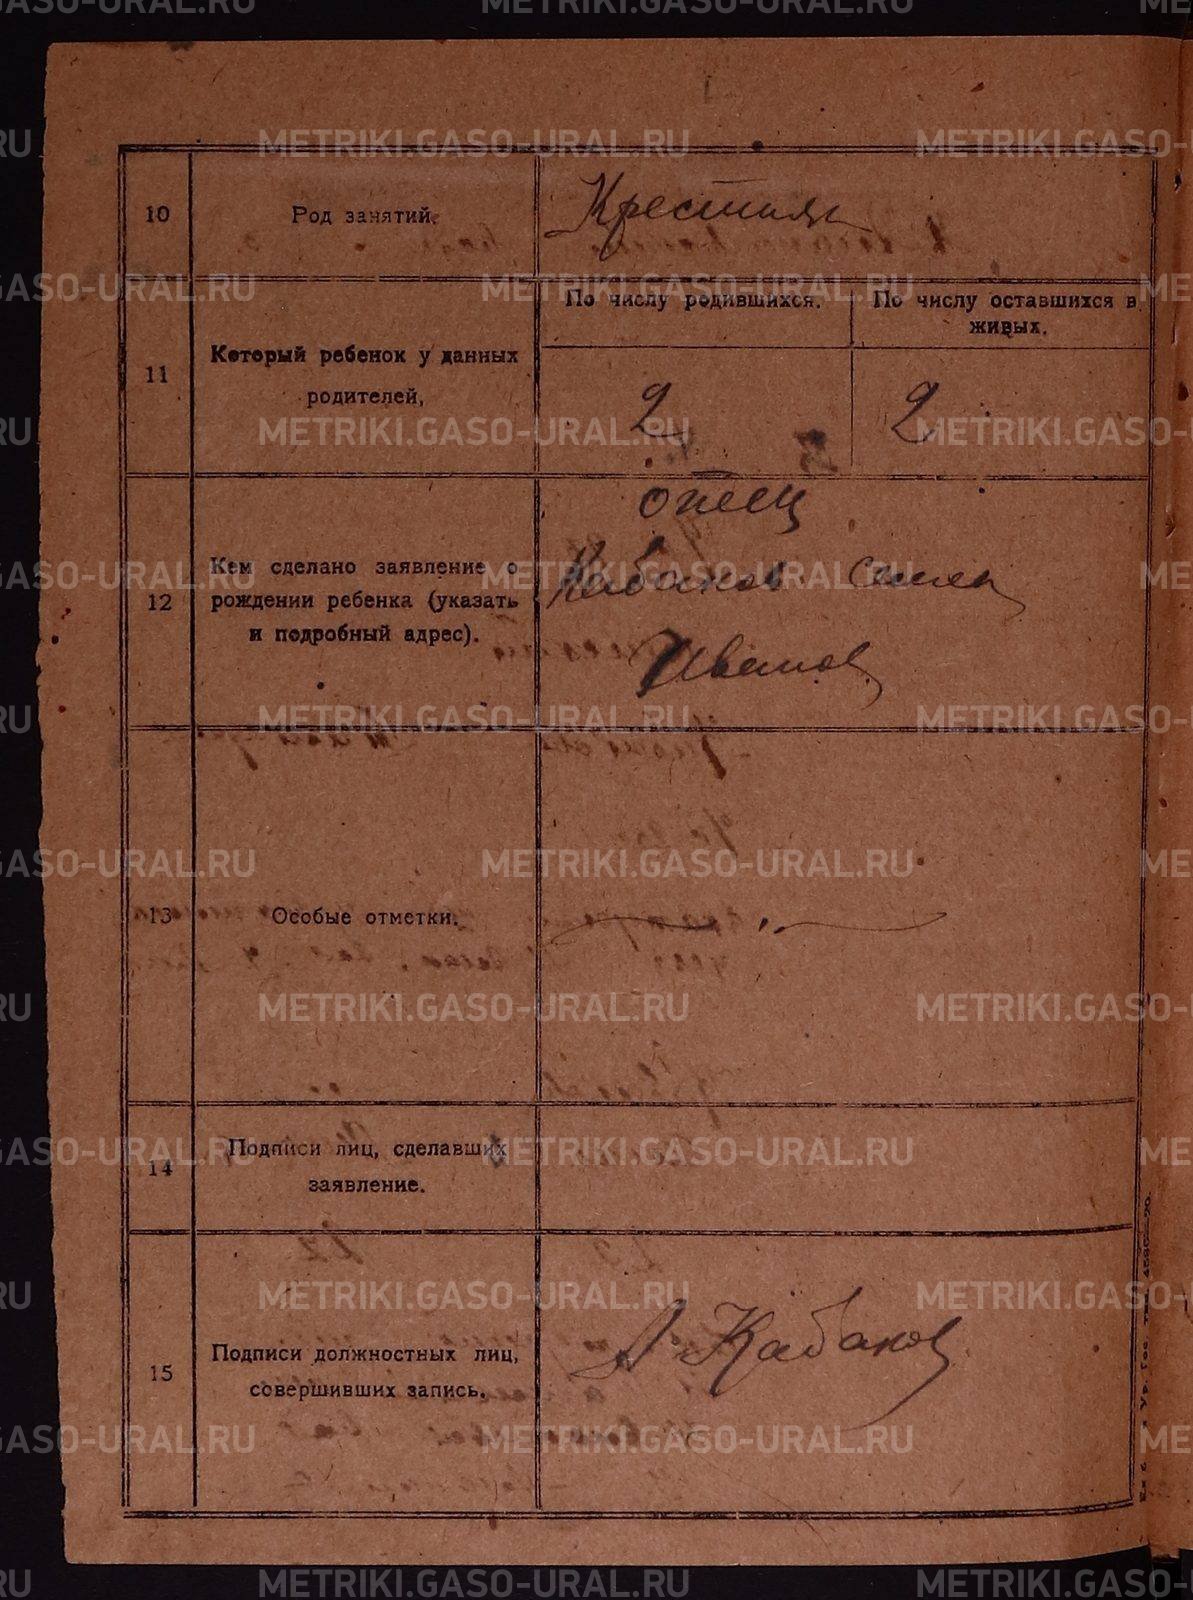 10
Род занятий.
Крестьян
11
Который ребенок у данных
родителей,
По числу родившихся.
По числу оставшихся в
живых.
2
2
12
Кем сделано заявление о
рождении ребенка (указать
и подробный адрес).
отец
Кабаков
Иванов
13
Особые отметки.
14
Подписи лиц, сделавших
заявление.
15
Подписи должностных лиц,
совершивших запись.
А Кабаков
METRIKI.GASO-URAL.RU